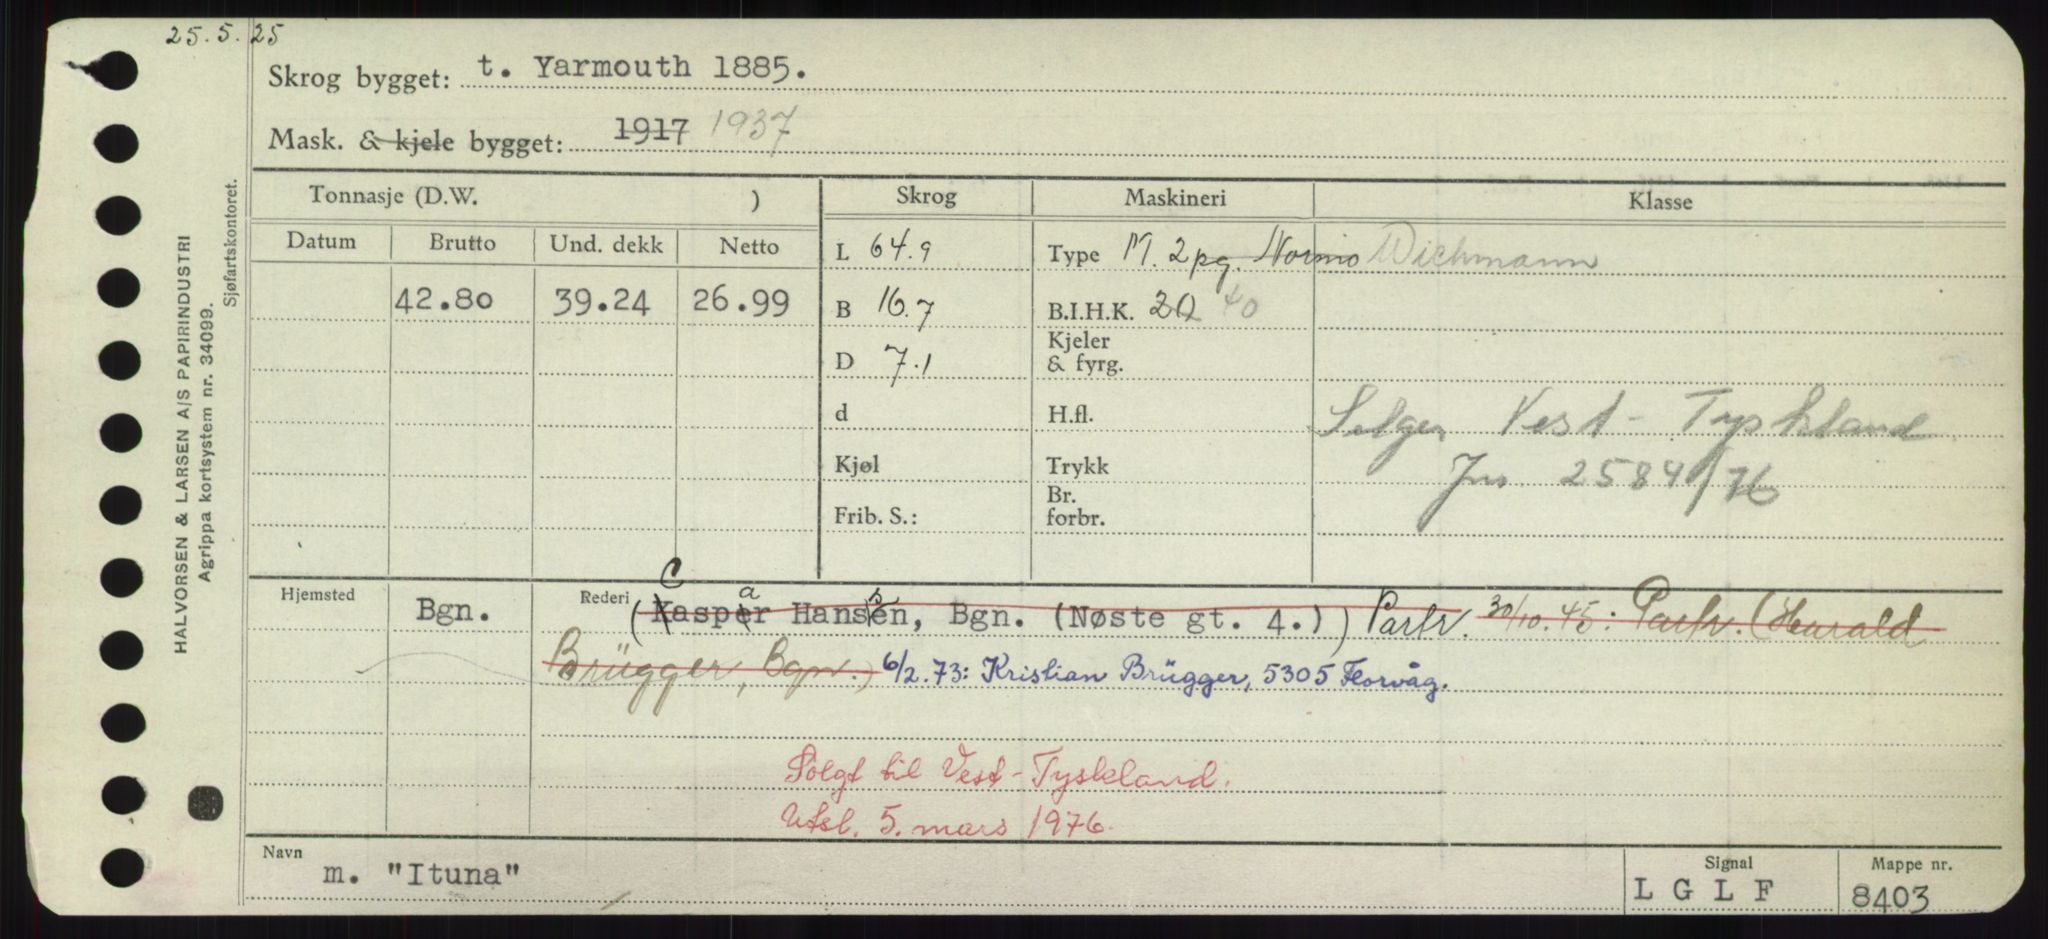 25.5.25
Skrog bygget: t. Yarmouth 1885.
Mask. & kjele bygget: 1917 1937
HALVORSEN & LARSEN A/S PAPIRINDUSTRI
Agrippa kortsystem nr. 34099.
Sjøfartskontoret.
Tonnasje (D.W. ) Skrog Maskineri Klasse
Datum Brutto Und. dekk Netto
L 64.9 Type M. 2 pg. Normo Wichmann
42.80 39.24 26.99 B 16.7 B.I.H.K. 20 40
Kjeler
D 7.1 & fyrg.
d H.fl. Selges Vest-Tyskland
Kjøl Trykk Jnr. 2584/76
Br.
Frib. S.: forbr.
Hjemsted Bgn. Rederi (Kasper Hansen, Bgn. (Nøste gt. 4.)) Partr. 30/10.45: Partr. (Harald
C a s
Brügger, Bgn.) 6/2.73: Kristian Brügger, 5305 Florvåg.
Solgt til Vest-Tyskland.
Utsl. 5. mars 1976.
Navn Signal Mappe nr.
m. "Ituna" L G L F 8403